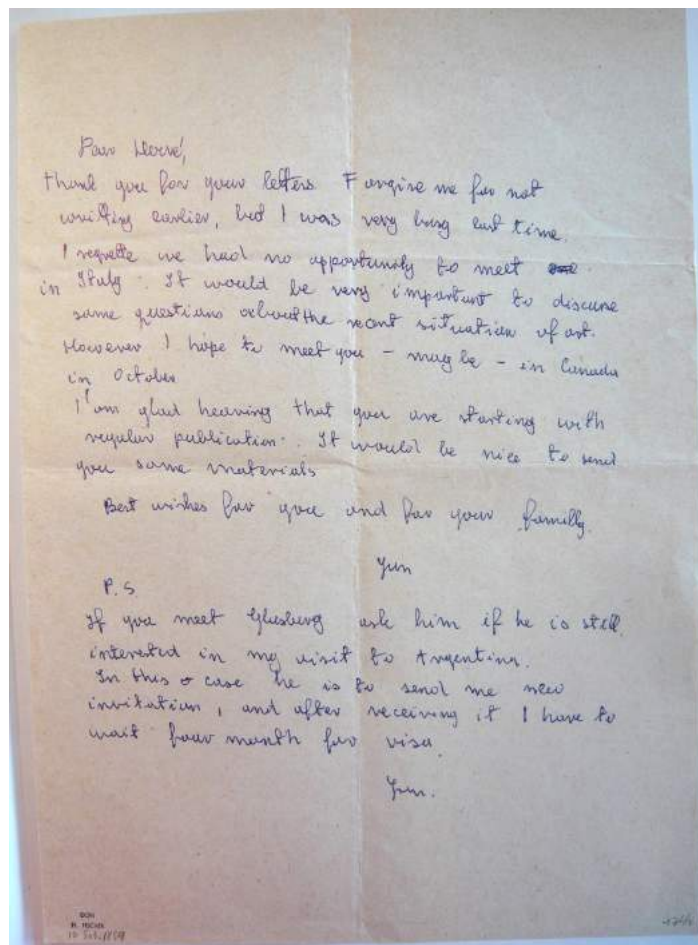 Dear Hervé,
Thank you for your letters. Forgive me for not
writing earlier, but I was very busy last time.
I regrette we had no opportunity to meet
in Italy. It would be very important to discuse
same questions about the recent situation of art.
However I hope to meet you – may be – in Canada
in October
I'am glad hearing that you are starting with
regular publication. It would be nice to send
you same materials
Best wishes for you and for your familly.
P.S.
If you meet Glusberg ask him if he is still
interested in my visit to Argentina.
In this case he is to send me new
invitation, and after receiving it I have to
wait four month for visa.
DON
H. FISCHER